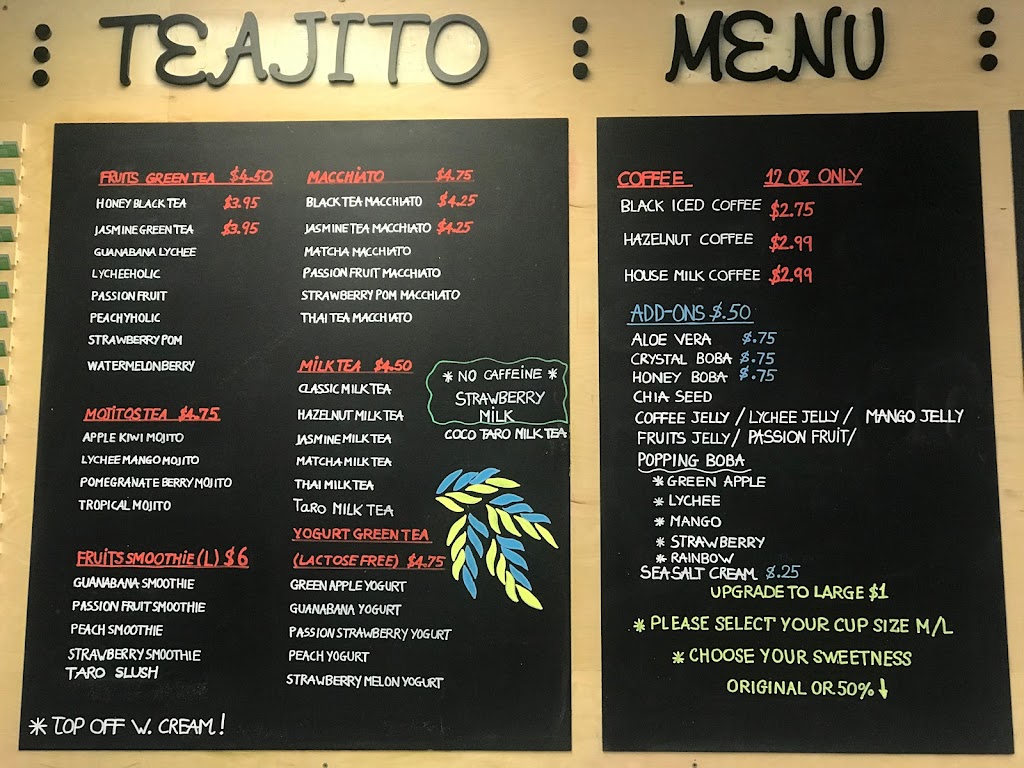 TEAJITO MENU
FRUITS GREEN TEA $4.50
HONEY BLACK TEA $3.95
JASMINE GREEN TEA $3.95
GUANABANA LYCHEE
LYCHEEHOLIC
PASSION FRUIT
PEACHYHOLIC
STRAWBERRY POM
WATERMELONBERRY
MOJITOS TEA $4.75
APPLE KIWI MOJITO
LYCHEE MANGO MOJITO
POMEGRANATE BERRY MOJITO
TROPICAL MOJITO
FRUITS SMOOTHIE (L) $6
GUANABANA SMOOTHIE
PASSION FRUIT SMOOTHIE
PEACH SMOOTHIE
STRAWBERRY SMOOTHIE
TARO SLUSH
* TOP OFF W. CREAM!
MACCHIATO $4.75
BLACK TEA MACCHIATO $4.25
JASMINE TEA MACCHIATO $4.25
MATCHA MACCHIATO
PASSION FRUIT MACCHIATO
STRAWBERRY POM MACCHIATO
THAI TEA MACCHIATO
MILK TEA $4.50
CLASSIC MILK TEA
HAZELNUT MILK TEA
JASMINE MILK TEA
MATCHA MILK TEA
THAI MILK TEA
TARO MILK TEA
* NO CAFFEINE *
STRAWBERRY
MILK
COCO TARO MILK TEA
YOGURT GREEN TEA
(LACTOSE FREE) $4.75
GREEN APPLE YOGURT
GUANABANA YOGURT
PASSION STRAWBERRY YOGURT
PEACH YOGURT
STRAWBERRY MELON YOGURT
COFFEE 12 OZ ONLY
BLACK ICED COFFEE $2.75
HAZELNUT COFFEE $2.99
HOUSE MILK COFFEE $2.99
ADD-ONS $.50
ALOE VERA $.75
CRYSTAL BOBA $.75
HONEY BOBA $.75
CHIA SEED
COFFEE JELLY / LYCHEE JELLY / MANGO JELLY
FRUITS JELLY / PASSION FRUIT/
POPPING BOBA
* GREEN APPLE
* LYCHEE
* MANGO
* STRAWBERRY
* RAINBOW
SEASALT CREAM $.25
UPGRADE TO LARGE $1
* PLEASE SELECT YOUR CUP SIZE M/L
* CHOOSE YOUR SWEETNESS
ORIGINAL OR 50% ↓